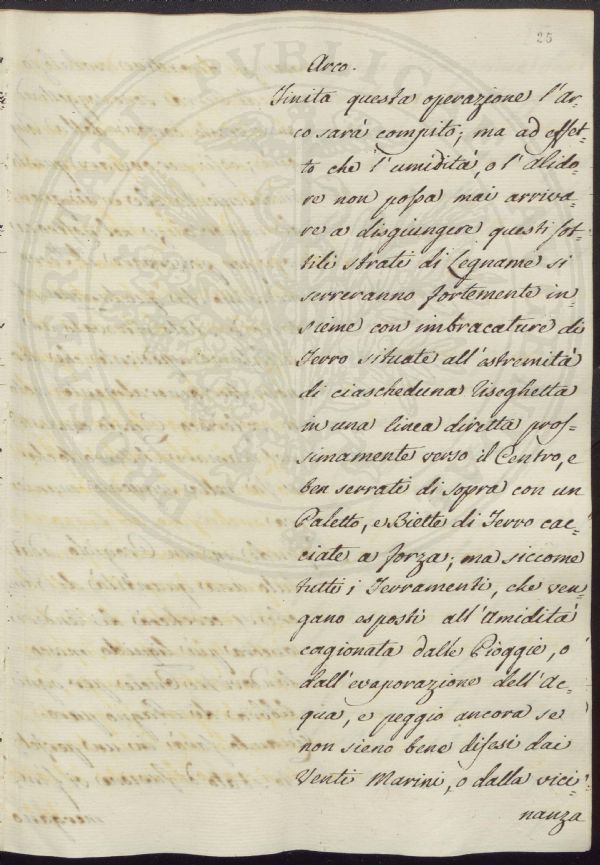 25
Arco.
Finita questa operazione l'Ar-
co sarà compito; ma ad effet-
to che l'umidità, o l'alido-
re non possa mai arriva-
re a disgiungere questi sot-
tili strati di Legname si
serreranno fortemente in-
sieme con imbracature di
Ferro situate all'estremità
di ciascheduna Riseghetta
in una linea diretta pros-
simamente verso il Centro, e
ben serrate di sopra con un
Paletto, e Biette di Ferro cac-
ciate a forza; ma siccome
tutti i Ferramenti, che ven-
gano esposti all'Umidità
cagionata dalle Pioggie, o
dall'evaporazione dell'Ac-
qua, e peggio ancora se
non sieno bene difesi dai
Venti Marini, o dalla vici-
nanza